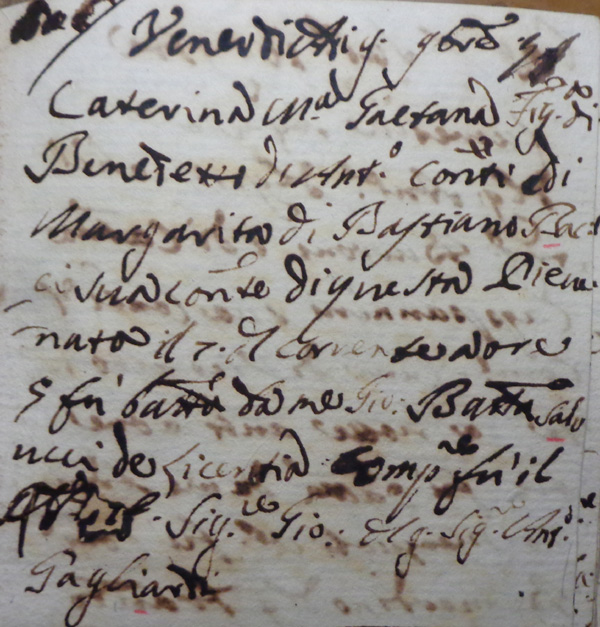 Venerdi 9bre
Caterina M.a Gaetana Fig.a di
Benedetto di Ant.o Conti e di
Margarita di Bastiano Bac
ci sua cons.te di questa Pieve
nata il 7. d.l corrente a ore
5 fu batt.a da me Gio: Batta Salv
ucci de licentia Comp.re fu il
Sig.re Gio: del q. Sig.r Ant.o
Gagliardi